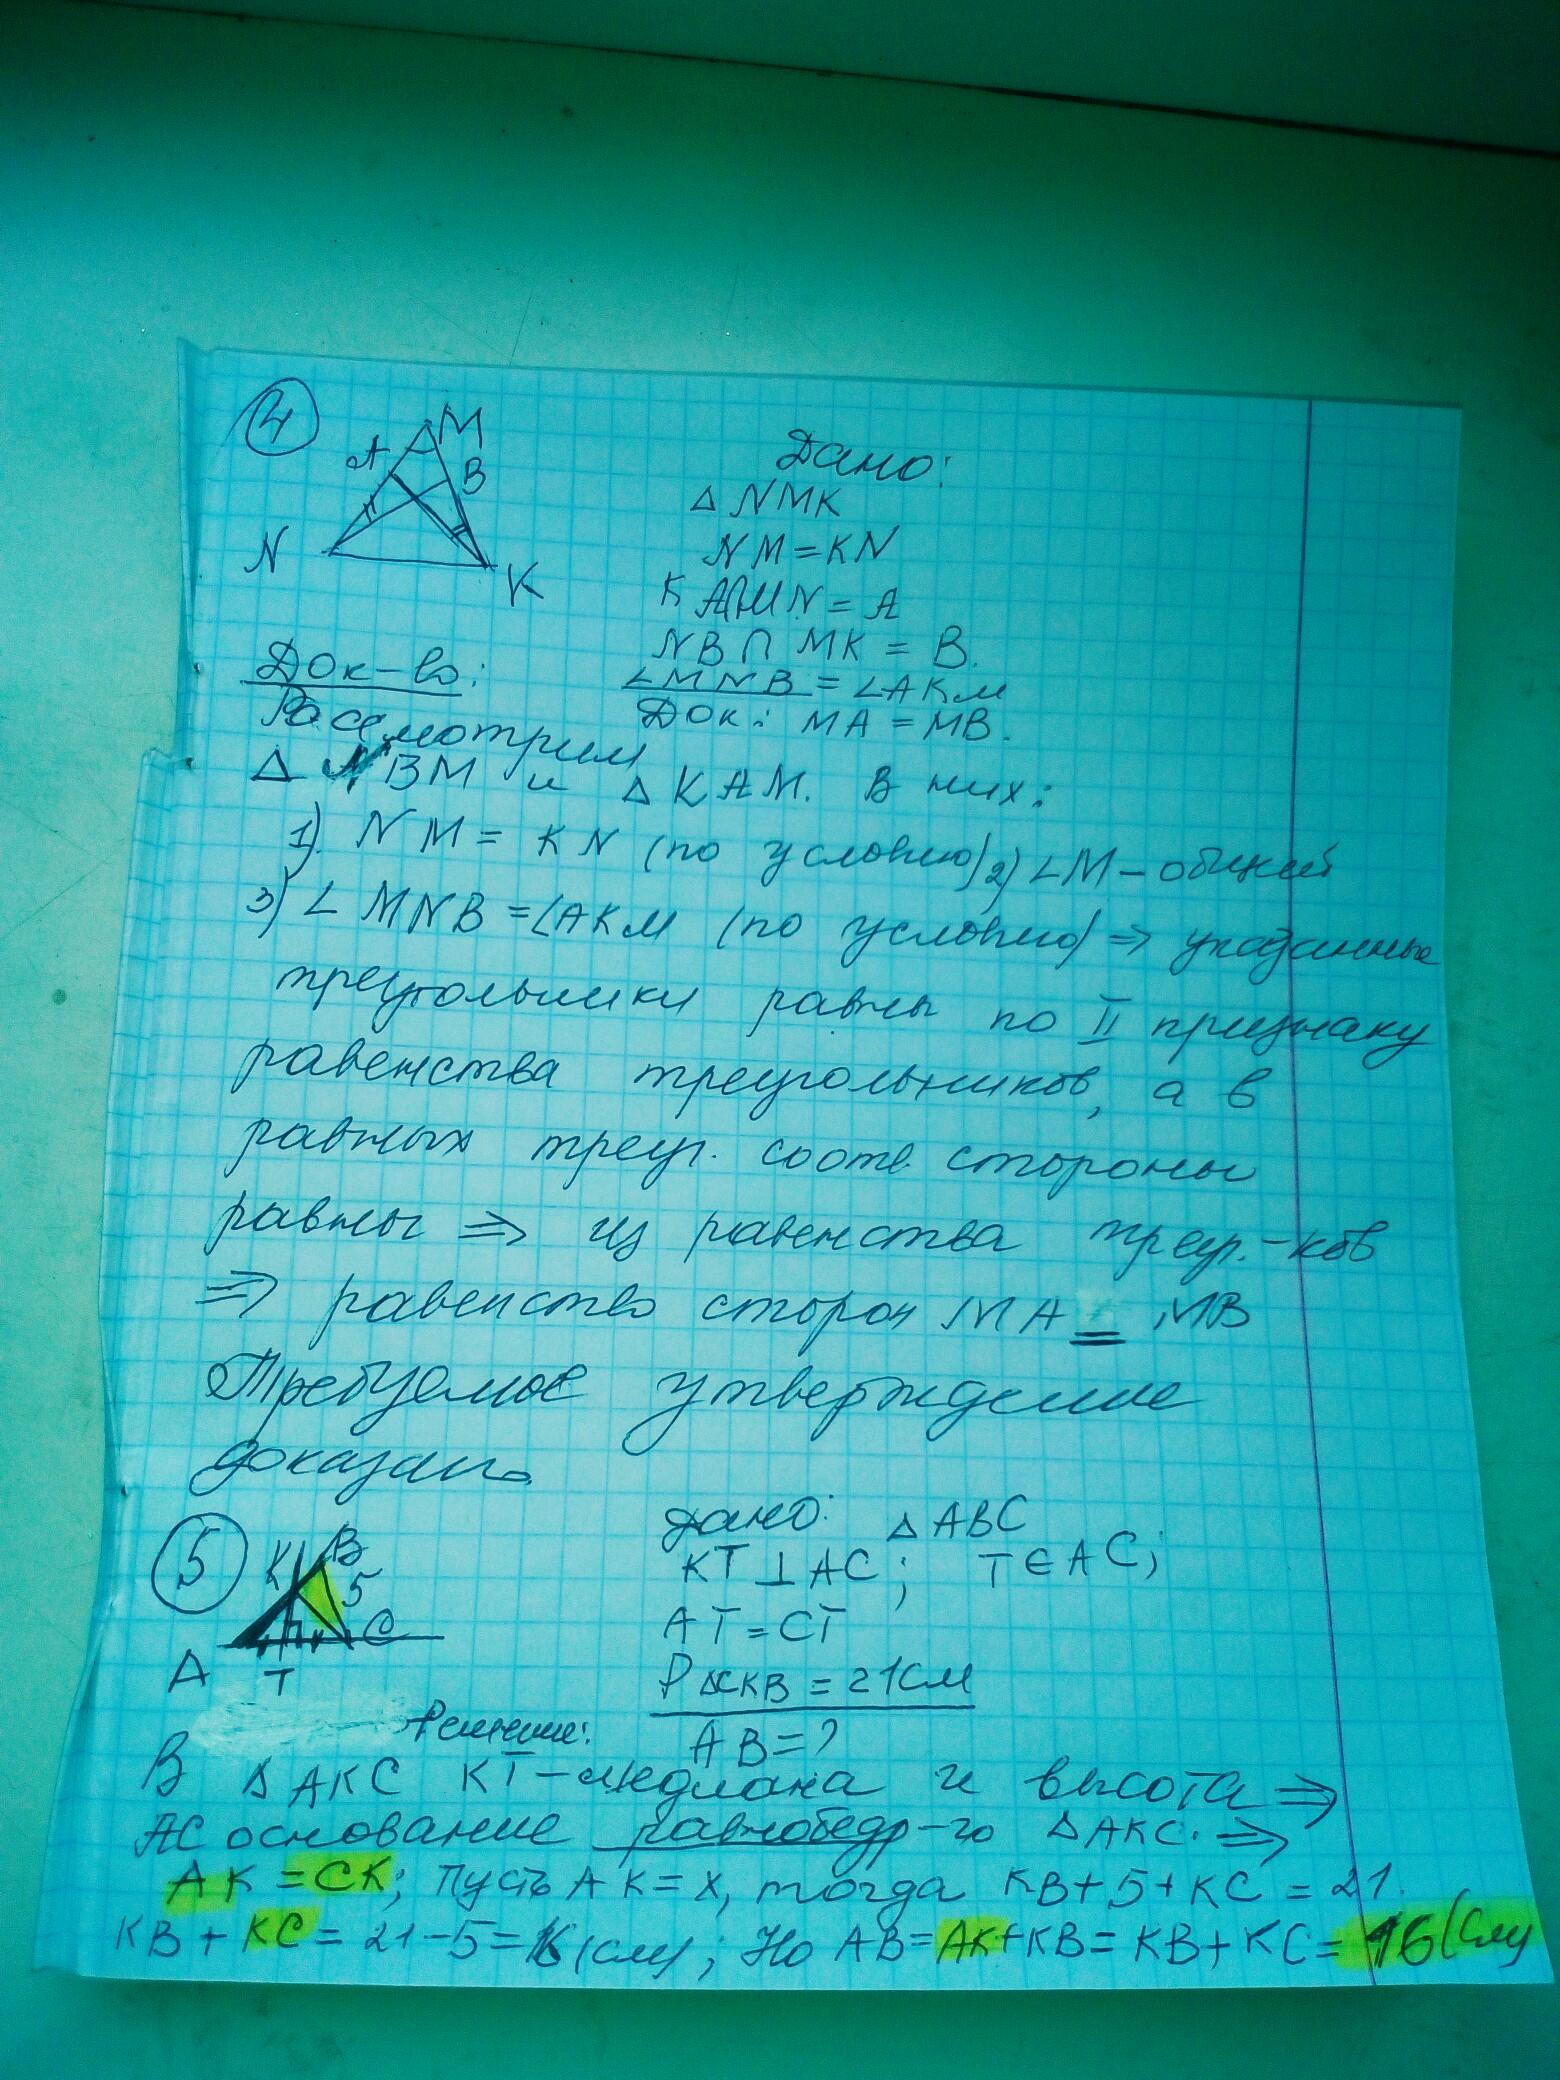 4
M
A
B
N
K
Дано:
△ NMK
NM = KN
KA∩MN = A
NB ∩ MK = B.
∠MNB = ∠AKM
Док: MA = MB.
Док-во:
Рассмотрим
△ NBM и △ KAM. В них:
1). NM = KN (по условию) 2) ∠M – общий
3) ∠ MNB = ∠AKM (по условию) ⇒ указанные
треугольники равны по II признаку
равенства треугольников, а в
равных треуг. соотв. стороны
равны ⇒ из равенства треуг.-ков
⇒ равенство сторон MA = MB
Требуемое утверждение
доказано.
5
K
B
5
C
A
T
Дано: △ ABC
KT ⊥ AC; T ∈ AC;
AT = CT
P△CKB = 21см
AB = ?
Решение:
В △ AKC KT – медиана и высота ⇒
AC основание равнобедр-го △ AKC. ⇒
AK = CK; пусть AK = x, тогда KB + 5 + KC = 21.
KB + KC = 21 – 5 = 16 (см); Но AB = AK + KB = KB + KC = 16 (см)